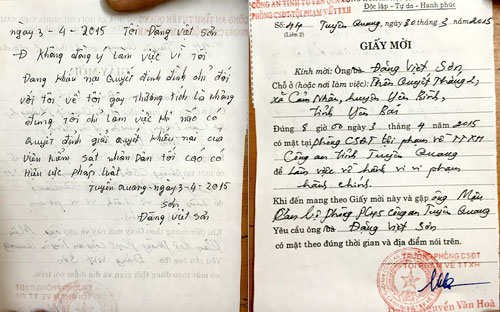 ngày 3-4-2015 Tôi Đặng viết sơn
Đ Không đồng ý làm việc vì tôi
Đang khiếu nại quyết định đình chỉ đối
với tôi về tội gây thương tích là không
đúng Tôi chỉ làm việc khi nào có
quyết định giải quyết khiếu nại của
viện kiểm sát nhân Dân tối cao có
Hiệu lực pháp luật
Tuyên Quang ngày 3-4-2015
Sơn
Đặng viết sơn
CÔNG AN TỈNH TUYÊN QUANG
PHÒNG CSĐT TỘI PHẠM VỀ TTXH
Độc lập - Tự do - Hạnh phúc
Số: 44 Tuyên Quang, ngày 30 tháng 3 năm 2015
(Liên 2)
GIẤY MỜI
Kính mời: Ông/bà Đặng Việt Sơn
Chỗ ở (hoặc nơi làm việc): Thôn Quyết Thắng 2,
xã Cảm Nhân, huyện Yên Bình,
tỉnh Yên Bái
Đúng 8 giờ 00 ngày 3 tháng 4 năm 2015
có mặt tại Phòng CSĐT tội phạm về TTXH
Công an tỉnh Tuyên Quang
để Làm việc về hành vi vi phạm
hành chính.
Khi đến mang theo Giấy mời này và gặp ông Mậu
Cán bộ phòng PC45 Công an Tuyên Quang
Yêu cầu ông/bà Đặng Việt Sơn
có mặt theo đúng thời gian và địa điểm nói trên.
TRƯỞNG PHÒNG CSĐT
TỘI PHẠM VỀ TTXH
Nguyễn Văn Hoà